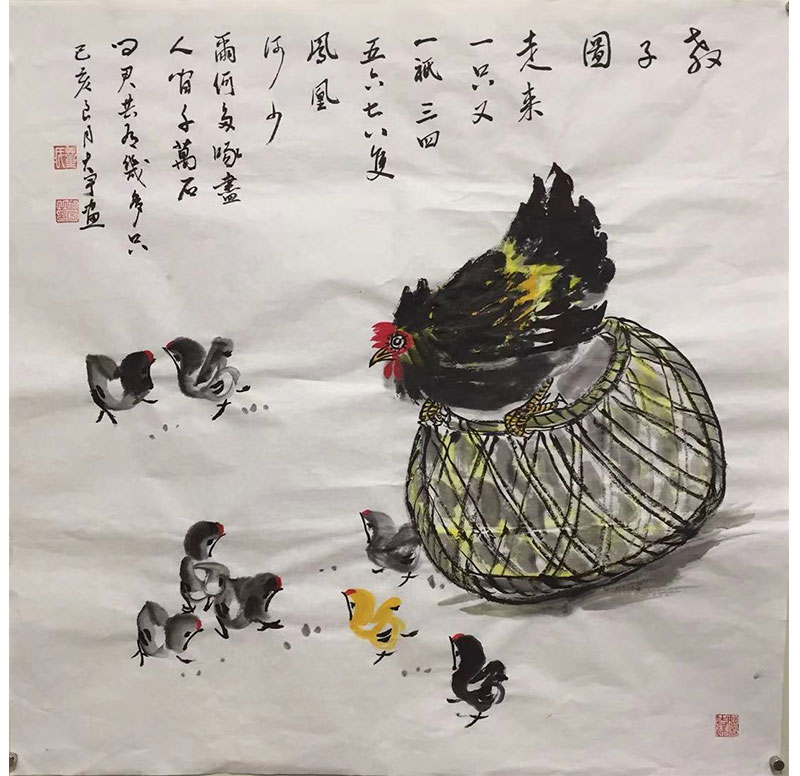 教
子
圖
走来
一只又
一祇三四
五六七八隻
鳳凰
何少
爾何多啄盡
人間千萬石
问君共有幾多只
己亥良月大宇画